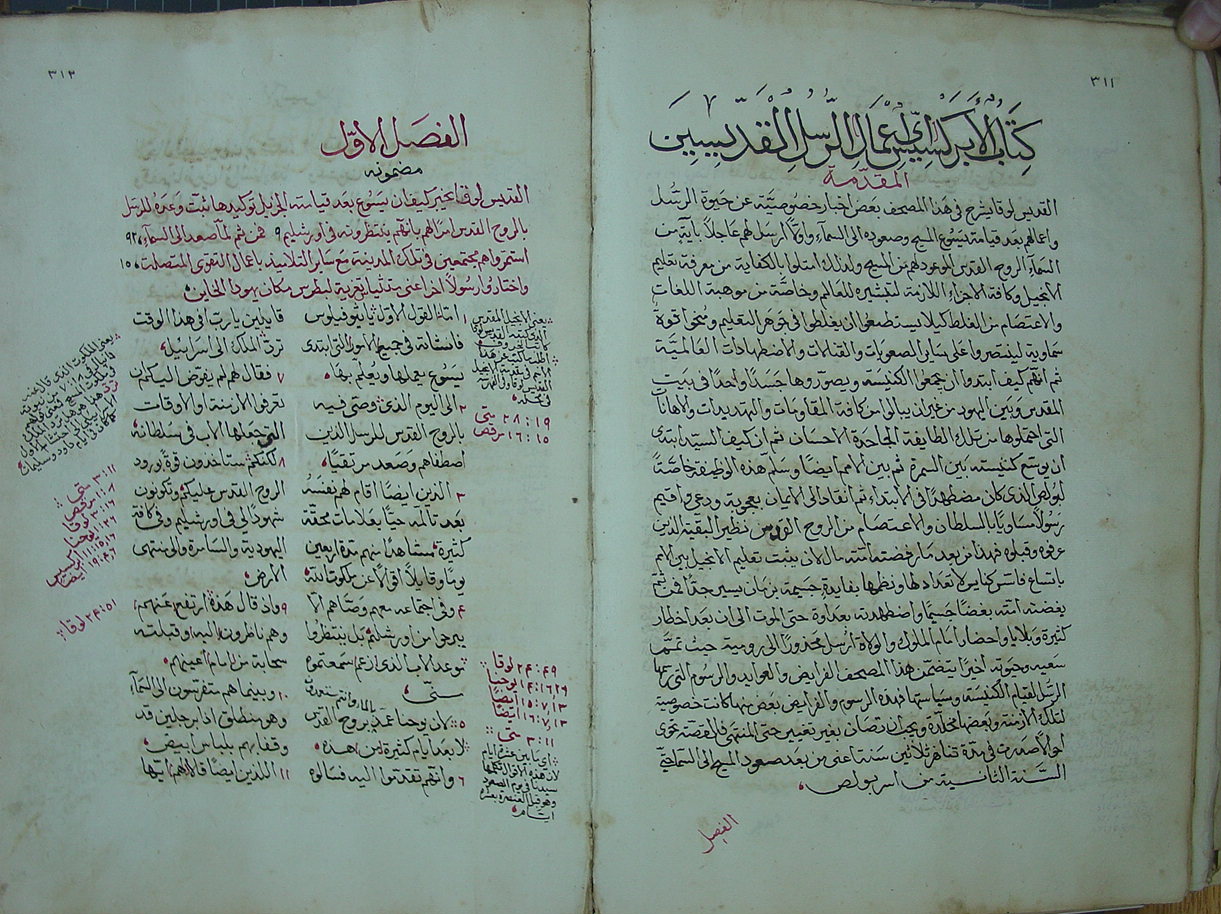 ٣١١
كتاب الأبركسيس اي اعمال الرسل القديسين
المقدمة
القديس لوقا يشرح في هذا المصحف بعض اخبار خصوصية عن حيوة الرسل
واعمالهم بعد قيامة يسوع المسيح وصعوده الى السماء واولا ارسل لهم عاجلا باية من
السماء الروح القدس الموعود لهم من المسيح ولذلك امتلوا بالكفاية من معرفة تعليم
الانجيل وكافة الاجزاء اللازمة لتنشيره للعالم وخاصة من موهبة اللغات
والاعتصام من الغلط كيلا يستطيعوا ان يغلطوا في جوهر التعليم ومنحوا قوة
سماوية لينتصروا على ساير الصعوبات والقتالات والاضطهادات العالمية
ثم انهم كيف ابتدوا ان يجمعوا الكنيسة ويصوروها جسدا واحدا في بيت
المقدس وبين اليهود من غير ان يبالوا من كافة المقاومات والتهديدات والاهانات
التي احتملوها من تلك الطايفة الجاحدة الاحسان ثم ان كيف السيد ابتدى
ان يوسع كنيسته بين السمرة ثم بين الامم ايضا وسلم هذه الوظيفة خاصة
لبولص الذي كان مضطهدا في الابتداء ثم انقاد الى الايمان باعجوبة ودعي واقيم
رسولا مساويا بالسلطان والاعتصام من الروح القدس نظير البقية الذين
عرفوه وقبلوه فهذا من بعد ما رفضته امته مال لان يثبت تعليم الانجيل بين الامم
باتساع فاسس كنايس لا تعداد لها ونظمها بفايدة جسيمة بزمان يسير جدا فمن ثم
بغضته امته بغضا جسيما واضطهدته بعداوة حتى الموت الى ان بعد اخطار
كثيرة وبلايا واحضار امام الملوك والولاة ارسل مخدورا الى رومية حيث تمم
سعيه وحيوته اخيرا يتضمن هذا المصحف الفرايض والعوايد والرسوم التي رسمها
الرسل لقيام الكنيسة وسياستها فهذه الرسوم والفرايض بعض منها كانت خصوصية
لتلك الازمنة وبعضها مخلدة ويجب ان تصان بغير تغيير حتى المنتهى فالقصة تحوي
امورا صدرت في مدة تناهز ثلاثين سنة اعني من بعد صعود المسيح الى السما في
السنة الثانية من اسر بولص
الفصل
٣١٢
الفصل الاول
مضمونه
القديس لوقا يخبر كيف ان يسوع بعد قيامته
للرسل
بالروح القدس امرا لهم بانهم ينتظرونه في اورشليم ٩ فمن ثم لما صعد الى السماء ١٢
استمروا هم مجتمعين في تلك المدينة مع ساير التلاميذ باعمال التقوى المتصلة ١٥
واختاروا رسولا اخر اعني متتيا بقرية لبطرس مكان يهودا الخاين
١ انشات القول الاول يا ثيوفيلوس
فانشاته في جميع الامور التي ابتدى
يسوع بعملها ويعلم بها
٢ الى اليوم الذي وصى فيه
بالروح القدس للرسل الذين
اصطفاهم وصعد مرتقيا
٣ الذين ايضا اقام لهم نفسه
بعد تالمه حيا بعلامات محققة
كثيرة مشاهدا منهم مدة اربعين
يوما وقايلا اقوالا عن ملكوت الله
٤ وفي اجتماعه معهم وصاهم الا
يبرحوا من اورشليم بل ينتظروا
موعد الاب الذي زعم سمعتموه
مني
٥ كان يوحنا عمد بالما وانتم ستعمدون بروح القدس
لا بعد ايام كثيرة من هذه
٦ وانهم تقدموا اليه فسالوه
قايلين يا رب افي هذا الوقت
ترد الملك الى اسراييل
٧ فقال لهم لم يفوض اليكم ان
تعرفوا الازمنة والاوقات
التي جعلها الاب في سلطانه
٨ لكنكم ستاخذون قوة بورود
الروح القدس عليكم وتكونون
شهودا لي في اورشليم وفي كافة
اليهودية والسامرة والى منتهى
الارض
٩ واذ قال هذه ارتفع عنهم
وهم ناظرون اليه وقبلته
سحابة من امام اعينهم
١٠ وبينما هم متفرسون الى السماء
وهو منطلق اذا برجلين قد
وقفا بهم بلباس ابيض
١١ اللذين ايضا قالا لهم ايها
متى ٢٨:١٩
مرقص ١٦:١٥
لوقا ٢٤:٤٩
يوحنا ١٤:١٦ ٢٦
ايضا ١٥:٧،١٣
ايضا ١٦:٧،١٣
متى ٣:١١
اي ما بين عشرة ايام
لان هذه الاقوال تكلمها
سيدنا في يوم الصعود
وهو قبل العنصرة بعشرة
ايام
متى ٣:١١
مرقص ١:٨
لوقا ٣:١٦
يوحنا ١:٢٦
ابركسيس ١١:١٥،١٦
ايضا ١٩:٤،٦
لوقا ٢٤:٥١